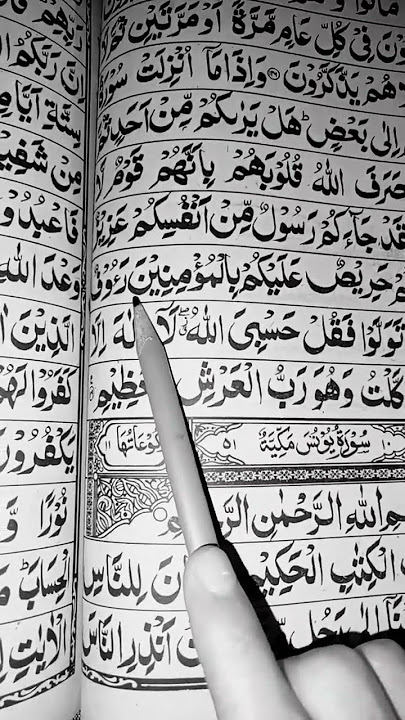 مَاتُوْا
فِيْ كُلِّ عَامٍ مَّرَّةً اَوْ مَرَّتَيْنِ
هُمْ يَذَّكَّرُوْنَ وَاِذَا مَاۤ اُنْزِلَتْ سُوْرَةٌ
اِلٰى بَعْضٍ هَلْ يَرٰىكُمْ مِّنْ اَحَدٍ
صَرَفَ اللّٰهُ قُلُوْبَهُمْ بِاَنَّهُمْ قَوْمٌ
قَدْ جَآءَكُمْ رَسُوْلٌ مِّنْ اَنْفُسِكُمْ عَزِيْزٌ
حَرِيْصٌ عَلَيْكُمْ بِالْمُؤْمِنِيْنَ رَءُوْفٌ
تَوَلَّوْا فَقُلْ حَسْبِيَ اللّٰهُ لَاۤ اِلٰهَ اِلَّا
كَّلْتُ وَهُوَ رَبُّ الْعَرْشِ الْعَظِيْمِ
١٠ سُوْرَةُ يُوْنُسَ مَكِّيَّةٌ ٥١ رُكُوْعَاتُهَا ١١
اللّٰهِ الرَّحْمٰنِ الرَّحِيْمِ
الْكِتٰبِ الْحَكِيْمِ لِلنَّاسِ
رَجُلٍ اَنْذِرِ النَّاسَ
رَبِّهِمْ
اِنَّ رَبَّكُمُ
سِتَّةِ اَيَّامٍ
مِنْ شَفِيْعٍ
فَاعْبُدُوْهُ
وَعْدَ اللّٰهِ
الَّذِيْنَ
كَفَرُوْا لَهُمْ
يَكْفُرُوْنَ
نُوْرًا وَّ
الْحِسَابَ
الْاٰيٰتِ